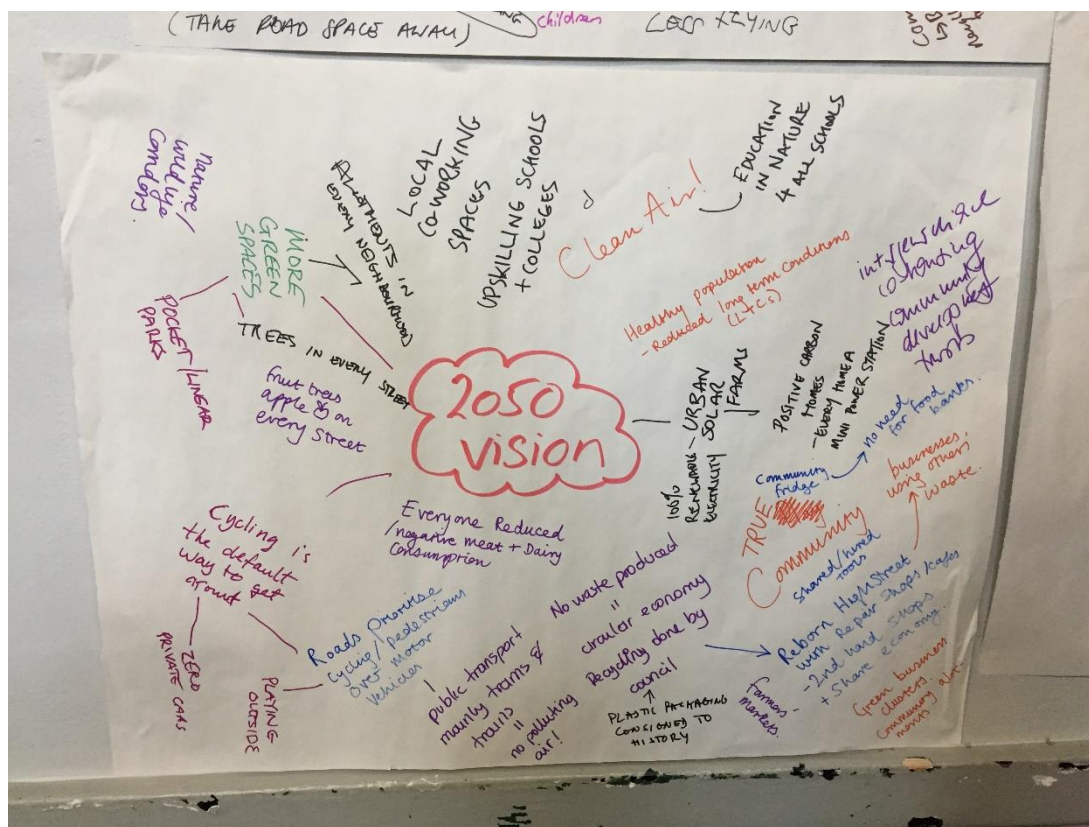 (TAKE ROAD SPACE AWAY)
children
LESS FLYING
Nature/
wildlife
corridors.
MORE
GREEN
SPACES
ALLOTMENTS IN
EVERY NEIGHBOURHOOD
LOCAL
CO-WORKING
SPACES
UPSKILLING SCHOOLS
+ COLLEGES
Clean Air!
EDUCATION
IN NATURE
4 ALL SCHOOLS
POCKET/LINEAR
PARKS
TREES IN EVERY STREET
fruit trees
apple on
every street
2050
vision
Healthy population
- Reduced long term conditions
(LTCs)
community
development
100%
RENEWABLE - URBAN
ELECTRICITY SOLAR
FARMS
POSITIVE CARBON
HOMES
- EVERY HOME A
MINI POWER STATION
Community
fridge
no need
for food
banks.
TRUE
Community
shared/hired
tools
businesses
using others
waste.
Cycling is
the default
way to get
around
ZERO
PRIVATE CARS
PLAYING
OUTSIDE
Roads prioritise
cycling/pedestrians
over motor
vehicles
Everyone Reduced
/negative meat + Dairy
Consumption
public transport
mainly trams &
trains
=
no polluting
air!
No waste produced
=
circular economy
Recycling done by
council
PLASTIC PACKAGING
CONSIGNED TO
HISTORY
Reborn High Street
with Repair Shops/cafes
- 2nd hand shops
+ Share economy.
Farmers
markets.
Green business
clusters.